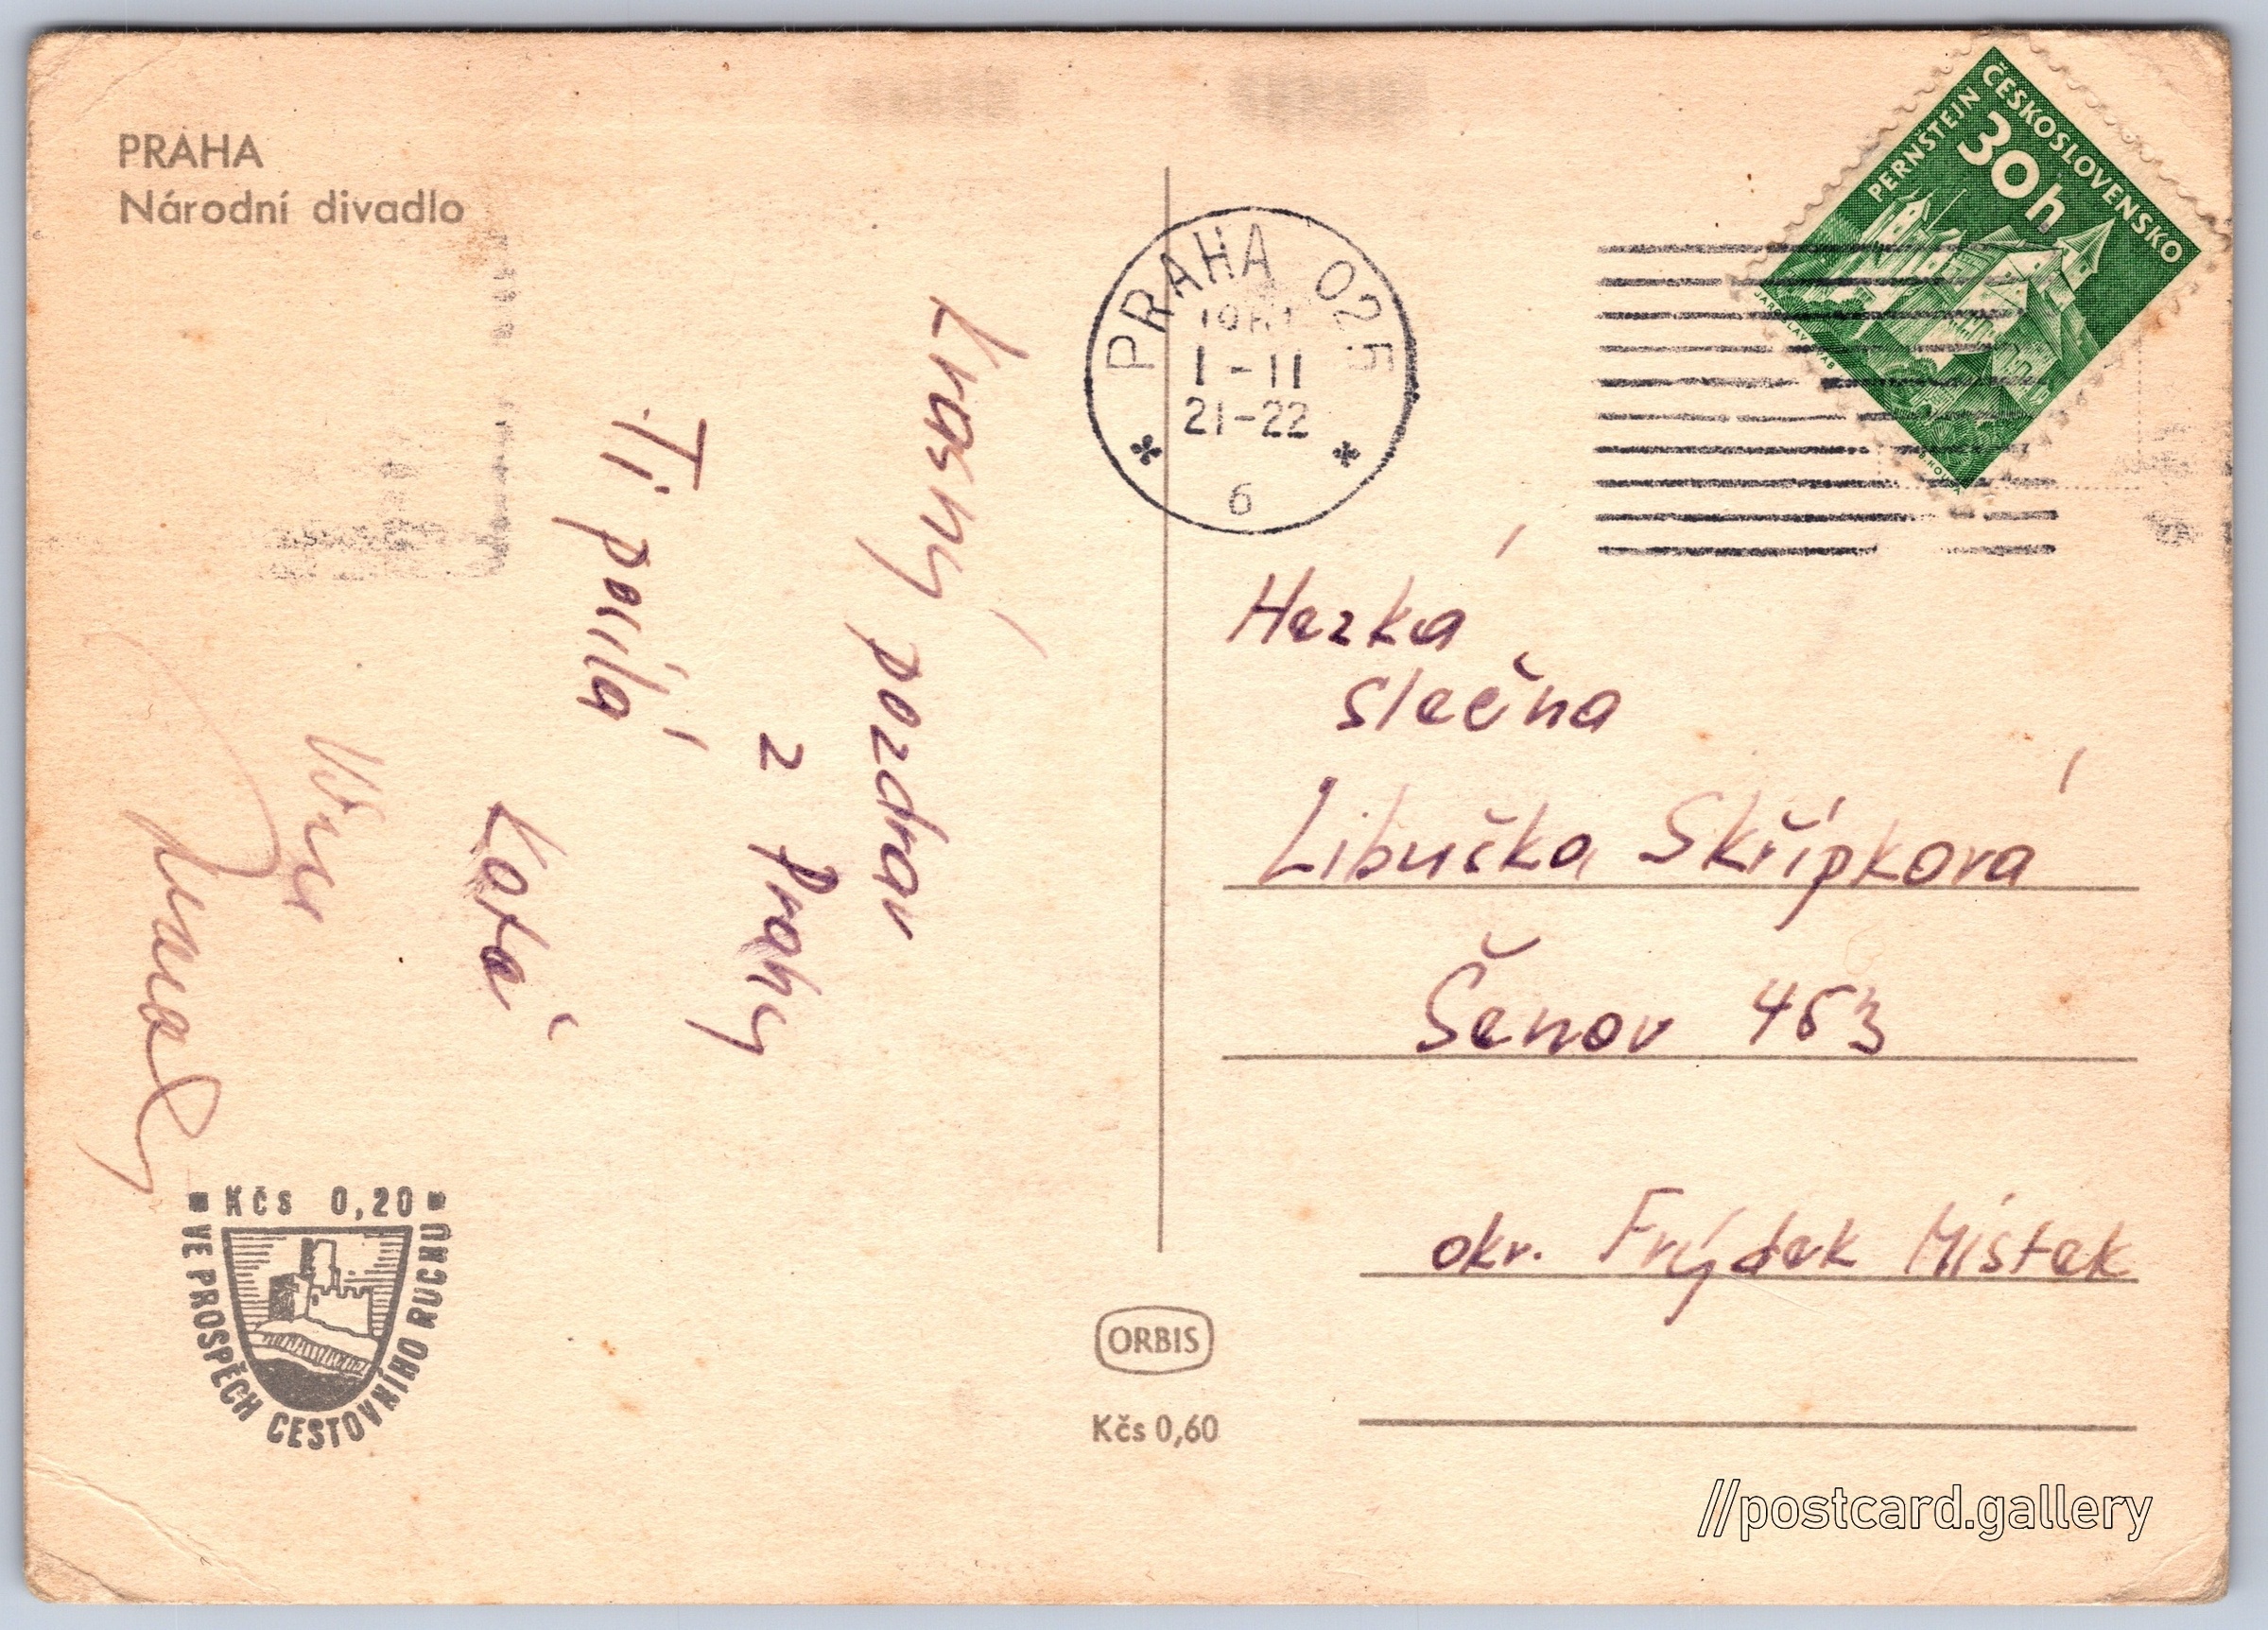 PRAHA
Národní divadlo
Krásný pozdrav
z Prahy
Ti posílá
Kotá
KčS 0,20
VE PROSPĚCH CESTOVNÍHO RUCHU
PRAHA 025
1-11
21-22
6
ČESKOSLOVENSKO
PERNŠTEJN
30h
Hezká
slečna
Libuška Skřípková
Šenov 463
okr. Frýdek Místek
ORBIS
Kčs 0,60
//postcard.gallery